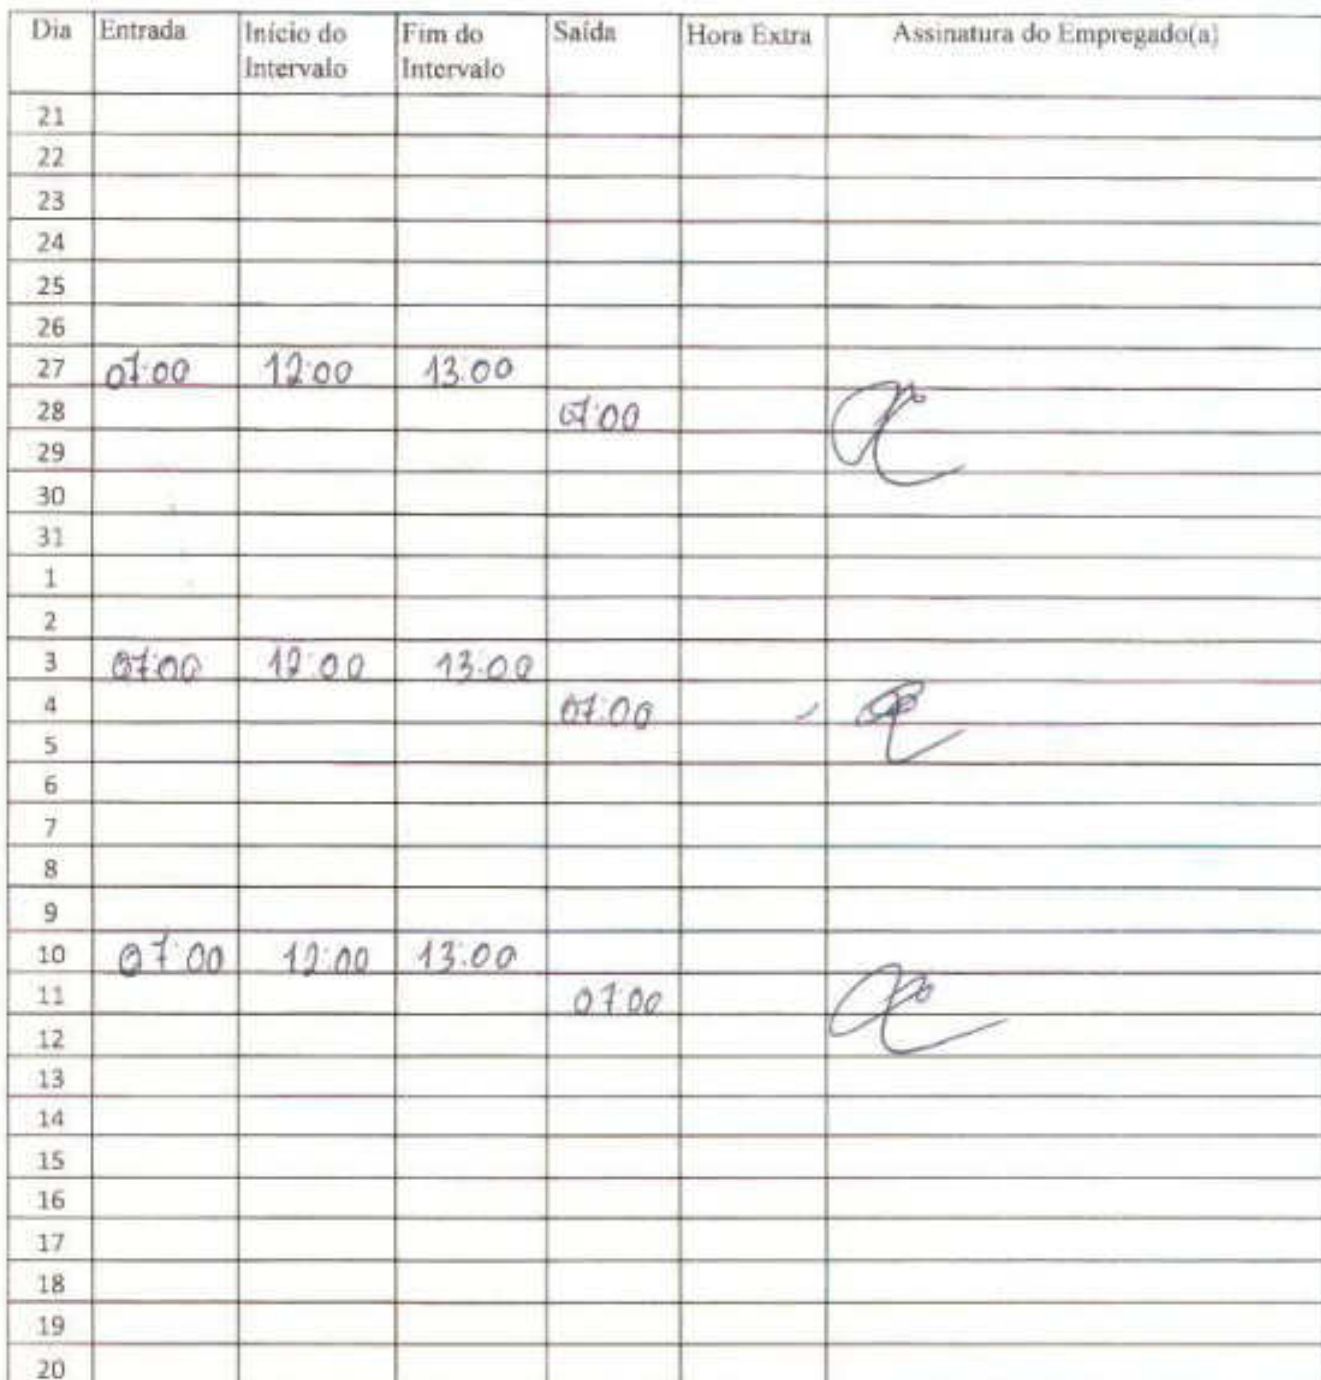 Dia Entrada Início do Intervalo Fim do Intervalo Saída Hora Extra Assinatura do Empregado(a)
21
22
23
24
25
26
27 07:00 12:00 13:00
28 07:00
29
30
31
1
2
3 07:00 12:00 13:00
4 07:00
5
6
7
8
9
10 07:00 12:00 13:00
11 07:00
12
13
14
15
16
17
18
19
20